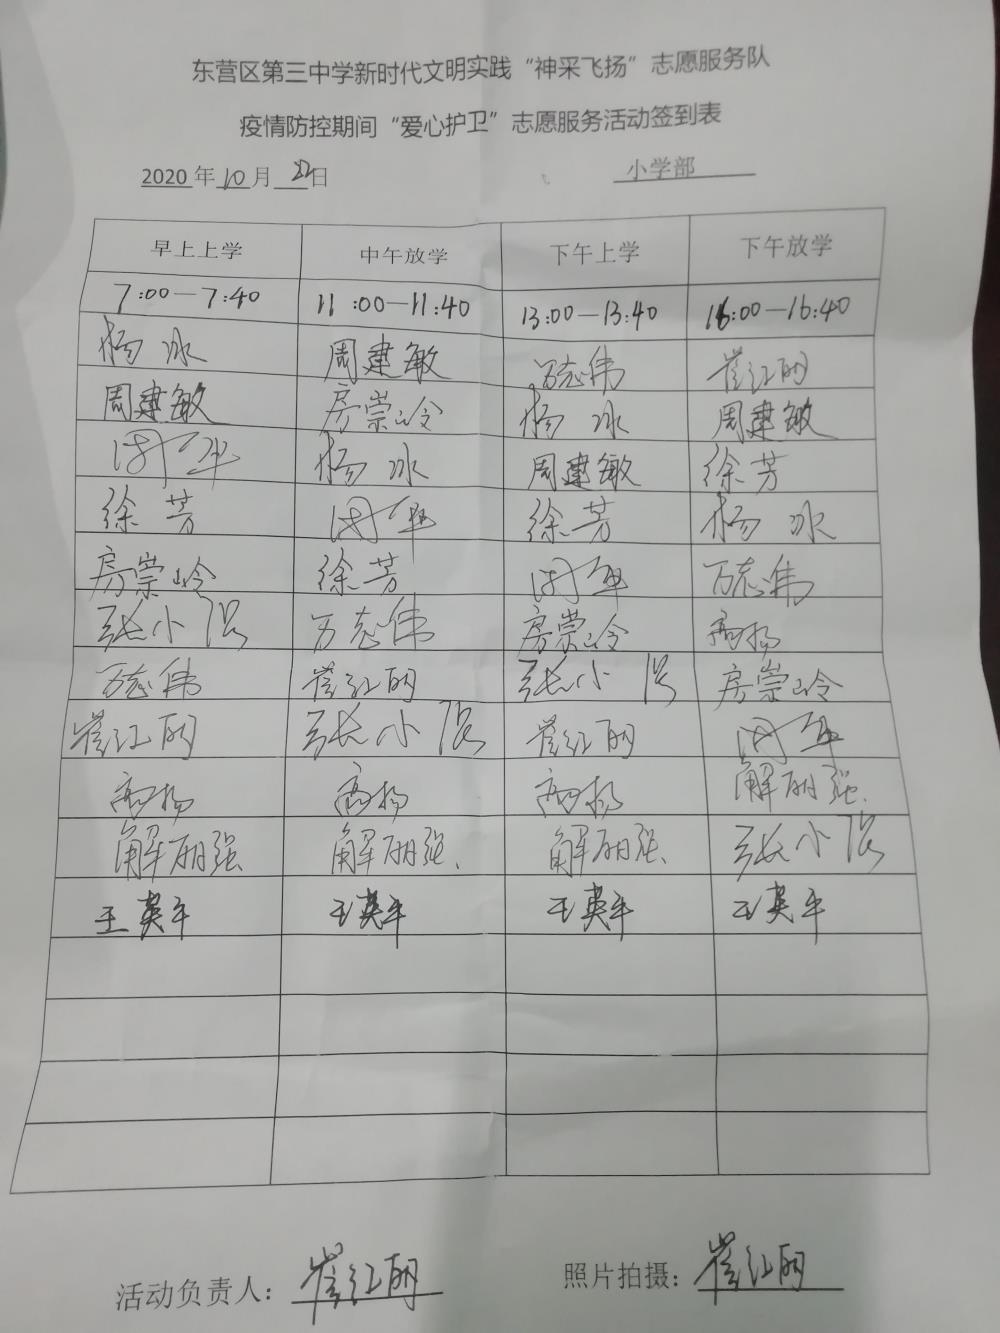 东营区第三中学新时代文明实践“神采飞扬”志愿服务队
疫情防控期间“爱心护卫”志愿服务活动签到表
2020年10月22日 小学部
早上上学 中午放学 下午上学 下午放学
7:00—7:40 11:00—11:40 13:00—13:40 16:00—16:40
杨冰 周建敏 万志伟 崔红丽
周建敏 房崇岭 杨冰 周建敏
杨冰 周建敏 徐芳
徐芳 徐芳 杨冰
房崇岭 徐芳 万志伟
张小 万志伟 房崇岭 高扬
万志伟 崔红丽 张小 房崇岭
崔红丽 张小 崔红丽
高扬 高扬 高扬 解丽强
解丽强 解丽强 解丽强 张小
王英平 王英平 王英平 王英平
活动负责人：崔红丽 照片拍摄：崔红丽